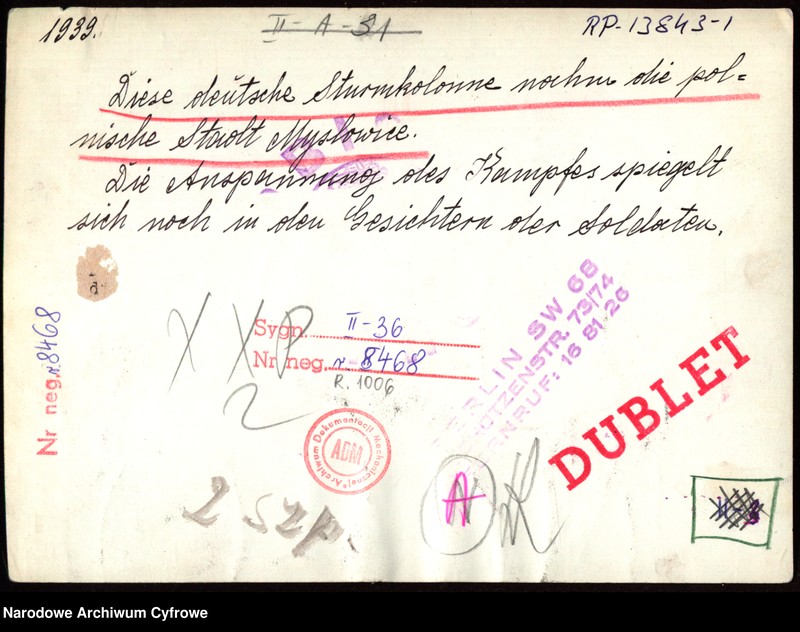 1939.
II-A-31
RP-13843-1
Diese deutsche Sturmkolonne nahm die pol=
nische Stadt Myslowice.
Die Anspannung des Kampfes spiegelt
sich noch in den Gesichtern der Soldaten.
Nr neg. n. 8468
X XP
2
Sygn. II-36
Nr neg. n. 8468
R. 1006
Archiwum Dokumentacji Mechanicznej
ADM
BERLIN SW 68
73/74
RUF: 16 81 26
DUBLET
2 szp.
A
Narodowe Archiwum Cyfrowe